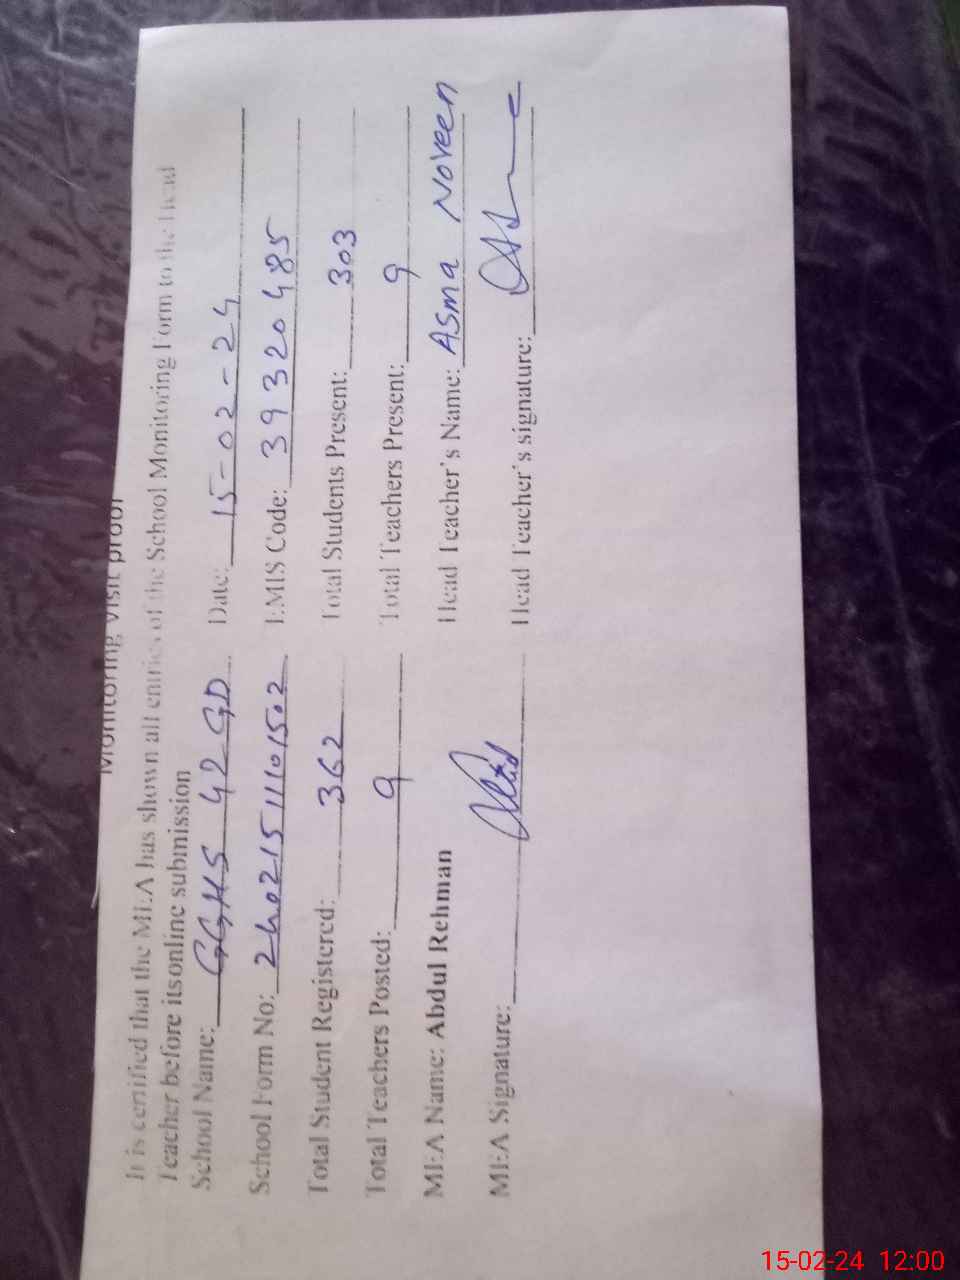 Monitoring visit proof
It is certified that the MEA has shown all entries of the School Monitoring Form to the Head
Teacher before itsonline submission
School Name: GGHS 42 GD Date: 15-02-24
School Form No: 240215111101502 EMIS Code: 39320485
Total Student Registered: 362 Total Students Present: 303
Total Teachers Posted: 9 Total Teachers Present: 9
MEA Name: Abdul Rehman Head Teacher's Name: Asma Noveen
MEA Signature: Head Teacher's signature:
15-02-24 12:00